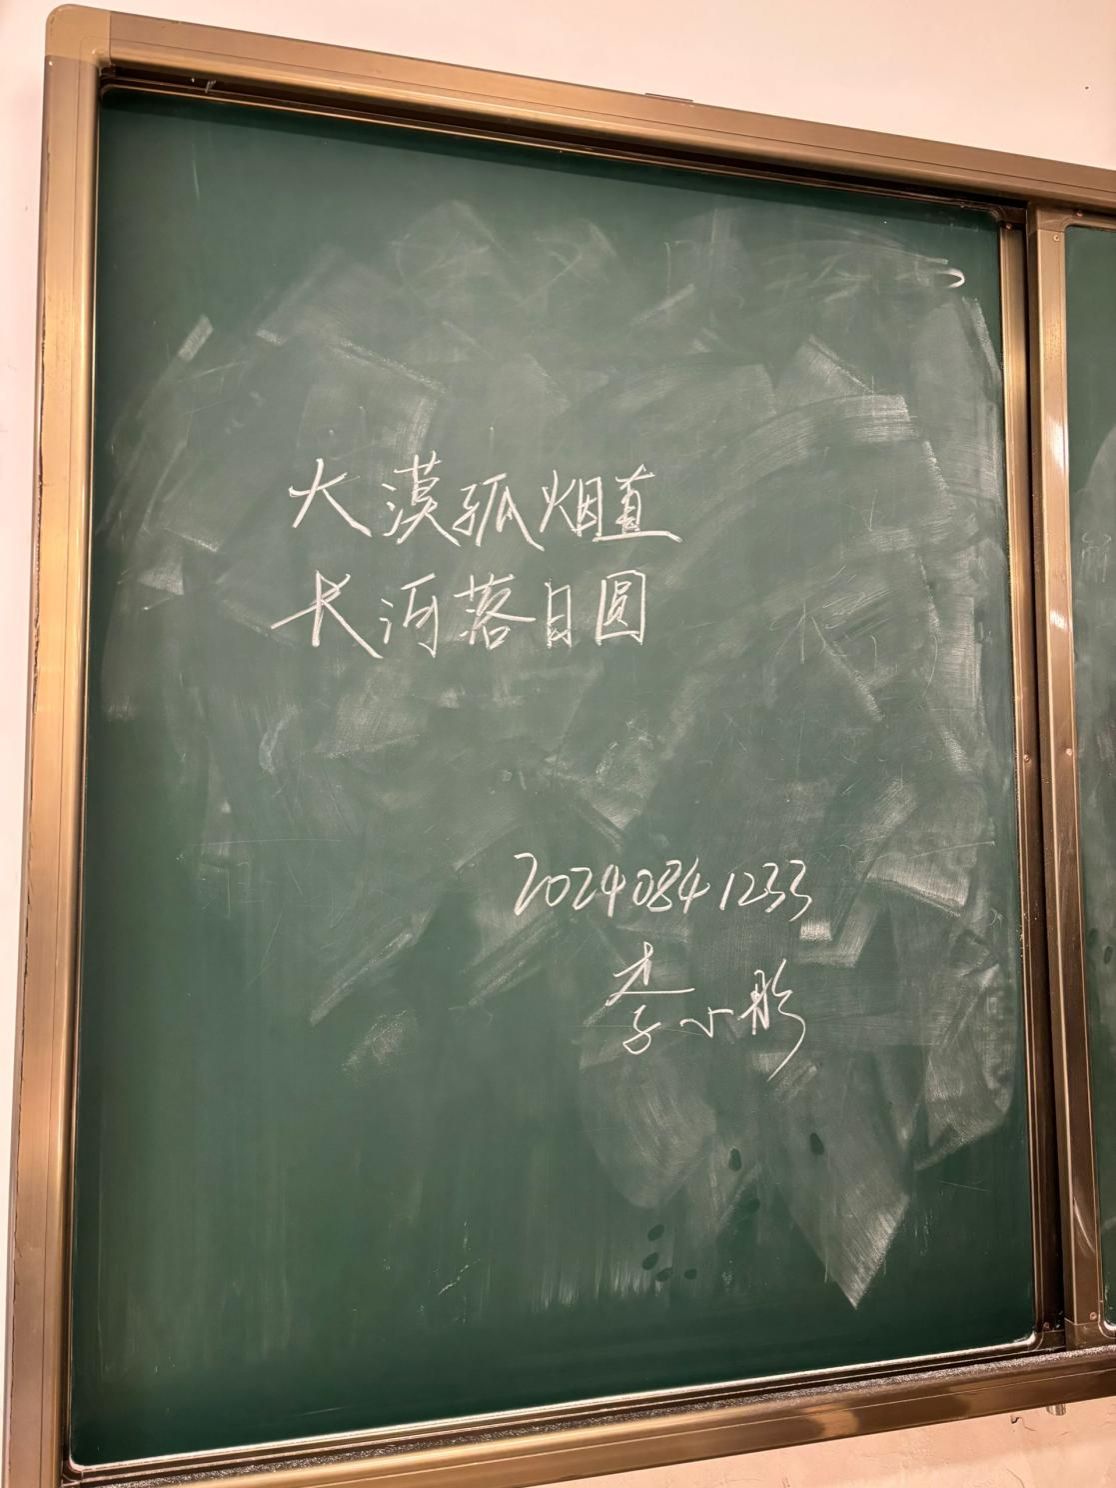 大漠孤烟直
长河落日圆
20240841233
李小彤